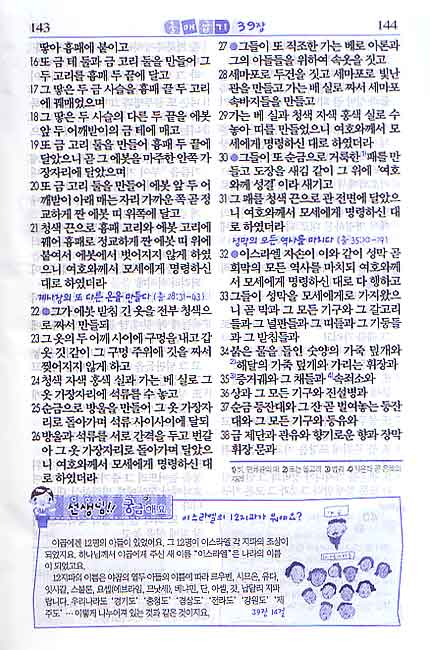 143
출애굽기 39장
144
땋아 흉패에 붙이고
16 또 금 테 둘과 금 고리 둘을 만들어 그
두 고리를 흉패 두 끝에 달고
17 그 땋은 두 금 사슬을 흉패 끝 두 고리
에 꿰매었으며
18 그 땋은 두 금 사슬의 다른 두 끝을 에봇
앞 두 어깨받이의 금 테에 매고
19 또 금 고리 둘을 만들어 흉패 두 끝에
달았으니 곧 그 에봇을 마주한 안쪽 가
장자리에 달았으며
20 또 금 고리 둘을 만들어 에봇 앞 두 어
깨받이 아래 매는 자리 가까운 쪽 곧 정
교하게 짠 에봇 띠 위쪽에 달고
21 청색 끈으로 흉패 고리와 에봇 고리에
꿰어 흉패로 정교하게 짠 에봇 띠 위에
붙여서 에봇에서 벗어지지 않게 하였
으니 여호와께서 모세에게 명령하신
대로 하였더라
제사장의 또 다른 옷을 만들다 (출 28:31-43)
22 ●그가 에봇 받침 긴 옷을 전부 청색으
로 짜서 만들되
23 그 옷의 두 어깨 사이에 구멍을 내고 갑
옷 깃 같이 그 구멍 주위에 깃을 짜서
찢어지지 않게 하고
24 청색 자색 홍색 실과 가는 베 실로 그
옷 가장자리에 석류를 수 놓고
25 순금으로 방울을 만들어 그 옷 가장자
리로 돌아가며 석류 사이사이에 달되
26 방울과 석류를 서로 간격을 두고 번갈
아 그 옷 가장자리로 돌아가며 달았으
니 여호와께서 모세에게 명령하신 대
로 하였더라
27 ●그들이 또 직조한 가는 베로 아론과
그의 아들들을 위하여 속옷을 짓고
28 세마포로 두건을 짓고 세마포로 빛난
관을 만들고 가는 베 실로 짜서 세마포
속바지들을 만들고
29 가는 베 실과 청색 자색 홍색 실로 수
놓아 띠를 만들었으니 여호와께서 모
세에게 명령하신 대로 하였더라
30 ●그들이 또 순금으로 거룩한 패를 만
들고 도장을 새김 같이 그 위에 '여호
와께 성결'이라 새기고
31 그 패를 청색 끈으로 관 전면에 달았으
니 여호와께서 모세에게 명령하신 대
로 하였더라
성막의 모든 역사를 마치다 (출 35:10-19)
32 ●이스라엘 자손이 이와 같이 성막 곧
회막의 모든 역사를 마치되 여호와께
서 모세에게 명령하신 대로 다 행하고
33 그들이 성막을 모세에게로 가져왔으
니 곧 막과 그 모든 기구와 그 갈고리
들과 그 널판들과 그 띠들과 그 기둥들
과 그 받침들과
34 붉은 물을 들인 숫양의 가죽 덮개와
2)해달의 가죽 덮개와 가리는 휘장과
35 3)증거궤와 그 채들과 4)속죄소와
36 상과 그 모든 기구와 진설병과
37 순금 등잔대와 그 잔 곧 벌여놓는 등잔
대와 그 모든 기구와 등유와
38 금 제단과 관유와 향기로운 향과 장막
휘장 문과
선생님!! 궁금해요
이스라엘의 12지파가 뭐예요?
야곱에겐 12명의 아들이 있었어요. 그 12명이 이스라엘 각 지파의 조상이
되었지요. 하나님께서 야곱에게 주신 새 이름 "이스라엘"은 나라의 이름
이 되었고요.
12지파의 이름은 야곱의 열두 아들의 이름에 따라 르우벤, 시므온, 유다,
잇사갈, 스불론, 요셉(에브라임, 므낫세), 베냐민, 단, 아셀, 갓, 납달리 지파
랍니다. 우리나라도 '경기도' '충청도' '경상도' '전라도' '강원도' '제
주도' … 이렇게 나누어져 있는 것과 같은 것이지요.
39장 14절